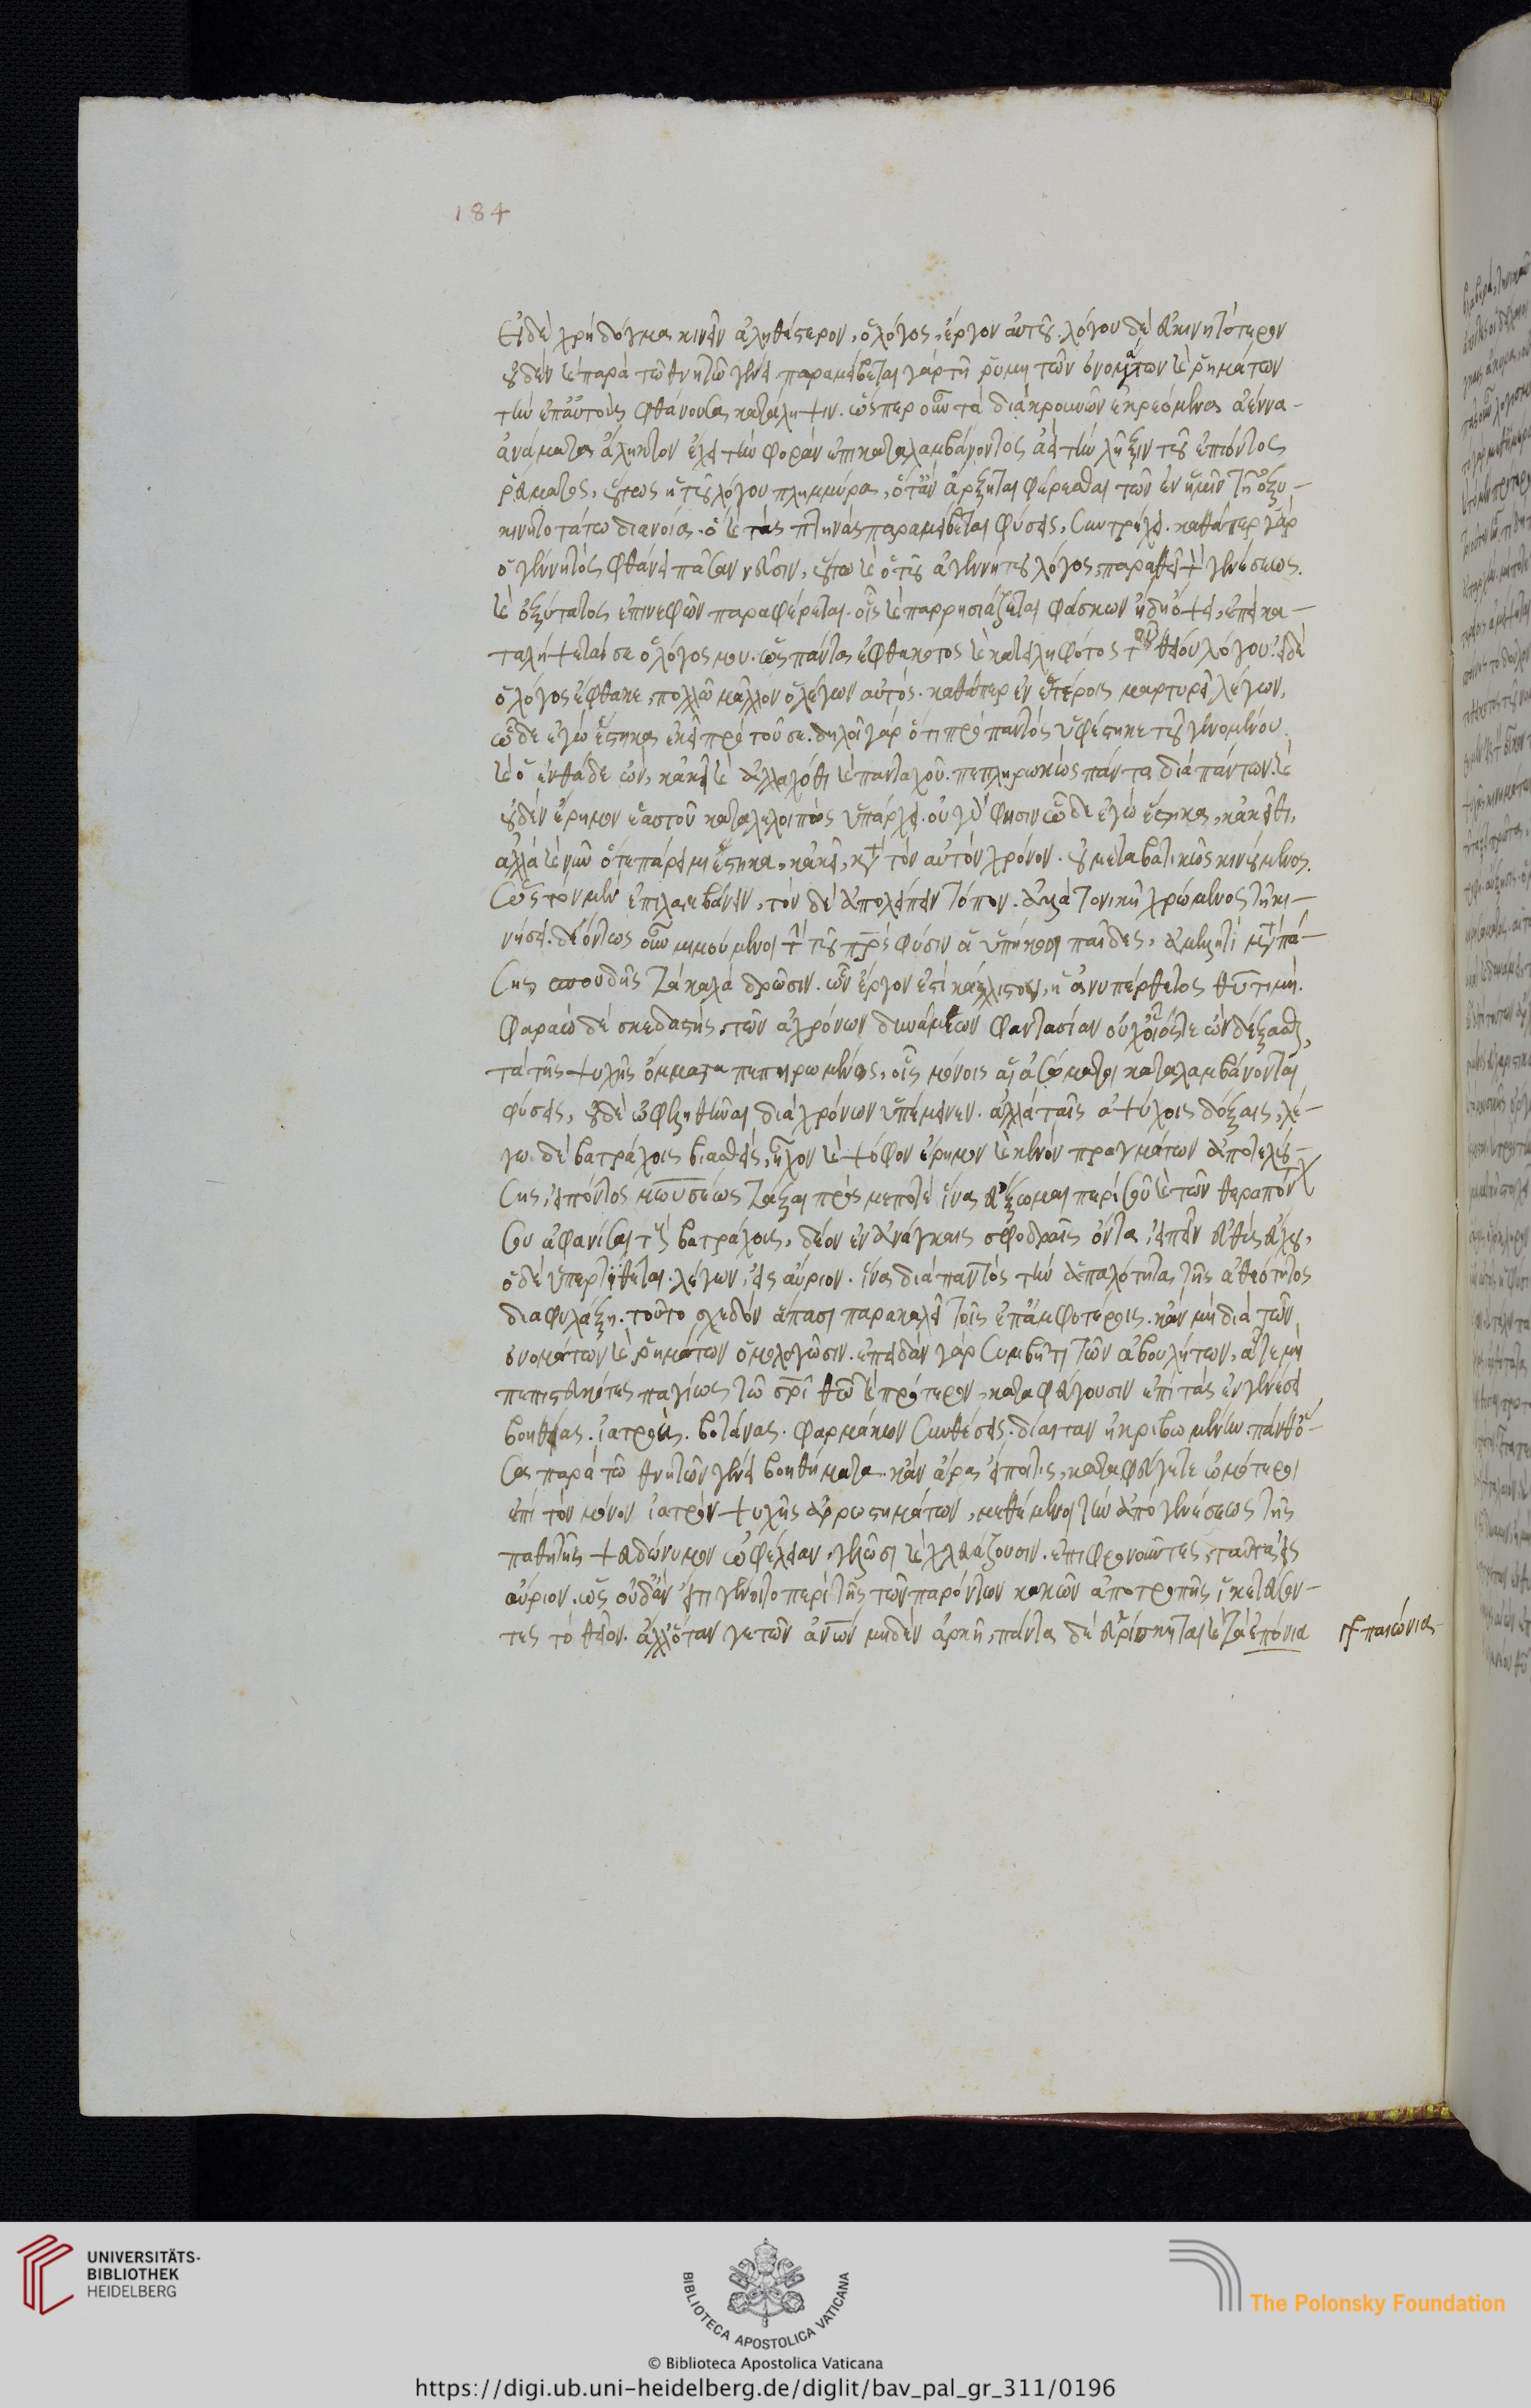 184
Εἰ δὲ χρὴ δόγμα κινεῖν ἀληθέστερον, ὁ λόγος ἔργον αὐτοῦ. λόγου δὲ εὐκινητότερον
οὐδὲν καὶ παρὰ τῶ θνητῶ γένει. παραμείβεται γὰρ τῆ ῥύμη τῶν ὀνομάτων καὶ ῥημάτων
τὴν ἐπ' αὐτοὺς φθάνουσα κατάληψιν. ὥσπερ οὖν τὰ διὰ κρουνῶν ἐκρεόμενα ἀέννα-
ἀνάματα ἄληκτον ἔχει τὴν φορὰν ἐπικαταλαμβάνοντος ἀεὶ τὴν λῆξιν τοῦ ἐπιόντος
ῥεύματος, οὕτως ἡ τοῦ λόγου πλημμύρα, ὅταν ἄρξηται φέρεσθαι τῶν ἐν ἡμῖν τῆ ὀξυ-
κινητοτάτω διανοία. ὃ καὶ τὰς πτηνὰς παραμείβεται φύσεις, συντρέχει. καθάπερ γὰρ
ὁ γέννητὸς φθάνει πᾶσαν γεῦσιν, οὕτω καὶ ὁ τοῦ ἀγεννήτου λόγος παραθεῖ τ γενέσεως.
καὶ ὀξύτατος ἐπὶ νεφῶν παραφέρεται. οἷς καὶ παρρησιάζεται φάσκων ἤδη ὄψει, εἰ ἐπικα-
ταλήψεταί σε ὁ λόγος μου. ὡς πάντα ἐφθακότος καὶ κατειληφότος τοῦ θείου λόγου. εἰ δὲ
ὁ λόγος ἔφθακε, πολλῶ μᾶλλον ὁ λέγων αὐτός. καθάπερ ἐν ἑτέροις μαρτυρεῖ λέγων,
ὧδε ἐγὼ ἕστηκα ἐκεῖ πρὸ τοῦ σε. δηλοῖ γὰρ ὅτι πρὸ παντὸς ὑφέστηκε τοῦ γενομένου
καὶ ὁ ἐνθάδε ὤν, κἀκεῖ καὶ ἀλλαχόθι καὶ πανταχοῦ. πεπληρωκὼς πάντα διὰ πάντων. καὶ
οὐδὲν ἔρημον ἑαυτοῦ καταλελοιπὼς ὑπάρχει. οὐ γὰρ φησιν ὧδε ἐγὼ ἕστηκα, κἀκεῖθι,
ἀλλὰ καὶ νῦν ὅτε πάρειμι ἕστηκα, κἀκεῖ, κατὰ τὸν αὐτὸν χρόνον. οὐ μεταβατικῶς κινούμενος.
ὡς τὸν μὲν ἐπιλαμβάνειν, τὸν δὲ ἀπολείπειν τόπον. ἀλλὰ τονικῆ χρώμενος τῆ κι-
νήσει. δεόντως οὖν μιμούμενοι τὴν τοῦ πατρὸς φύσιν οἱ ὑπήκοοι παῖδες, ἀμελητὶ μετὰ πά-
σης σπουδῆς τὰ καλὰ δρῶσιν. ὧν ἔργον ἐστὶ κάλλιστον, ἡ ἀνυπέρθετος θεοῦ τιμή.
Φαραὼ δὲ σκεδαστὴς, τῶν ἀχρόνων δυνάμεων φαντασίαν οὐχ οἷός τε ὢν δέξασθαι,
τὰ τῆς ψυχῆς ὄμματα πεπηρωμένος, οἷς μόνοις αἱ ἀσώματοι καταλαμβάνονται
φύσεις, οὐδὲ ὠφεληθῆναι διὰ χρόνων ὑπέμεινεν. ἀλλὰ ταῖς ἀψύχοις δόξαις, λέ-
γω δὲ βατράχοις βιασθεὶς, ἦχον καὶ ψόφον ἔρημον καὶ κενὸν πραγμάτων ἀποτελού-
σης, εἰπόντος μωυσέως τάξαι πρός με πότε ἵνα εὔξωμαι περὶ σοῦ καὶ τῶν θεραπόντων
σου ἀφανίσαι τοὺς βατράχους, δέον ἐν ἀνάγκαις σφοδραῖς ὄντα, εἰπεῖν εὐθὺς εὔχου,
ὁ δὲ ὑπερτίθεται λέγων, εἰς αὔριον. ἵνα διὰ παντὸς τὴν ἁπαλότητα τῆς ἀθεότητος
διαφυλάξη. τοῦτο σχεδὸν ἅπασι παρακαλεῖ τοῖς ἐπαμφοτέροις. κἂν μὴ διὰ τῶν
ὀνομάτων καὶ ῥημάτων ὁμολογῶσιν. ἐπειδὰν γὰρ συμβῆ τι τῶν ἀβουλήτων, ἅτε μὴ
πεπιστευκότες παγίως τῶ σρι θῶ καὶ πρότερον, καταφεύγουσιν ἐπὶ τὰς ἐν γενέσει
βοηθείας. ἰατροὺς. βοτάνας. φαρμάκων συνθέσεις. δίαιταν ἠκριβωμένην. πάνθ' ὅ-
σα παρὰ τῶ θνητῶν γένει βοηθήματα. κἂν ἄρα εἴποι τις, καταφεύγετε ὦ μότεροι
ἐπὶ τὸν μόνον ἰατρὸν ψυχῆς ἀρρωστημάτων, μεθέμενοι τὴν ἀπὸ γενέσεως τῆς
παθητῆς ψευδώνυμον ὠφέλειαν, γελῶσι καὶ χλευάζουσιν. ἐπιφρονοῦντες, ταῦτα εἰς
αὔριον. ὡς οὐδ' ἂν εἴ τι γένοιτο περὶ τῆς τῶν παρόντων κακῶν ἀποτροπῆς ἱκετεύσον-
τες τὸ θεῖον. ἀλλ' ὅταν γε τῶν ἀνων μηδὲν ἀρκῆ, πάντα δὲ εὑρίσκηται καὶ τὰ ἐπόνια ἴσ. παιώνια
UNIVERSITÄTS-
BIBLIOTHEK
HEIDELBERG
BIBLIOTECA APOSTOLICA VATICANA
The Polonsky Foundation
© Biblioteca Apostolica Vaticana
https://digi.ub.uni-heidelberg.de/diglit/bav_pal_gr_311/0196